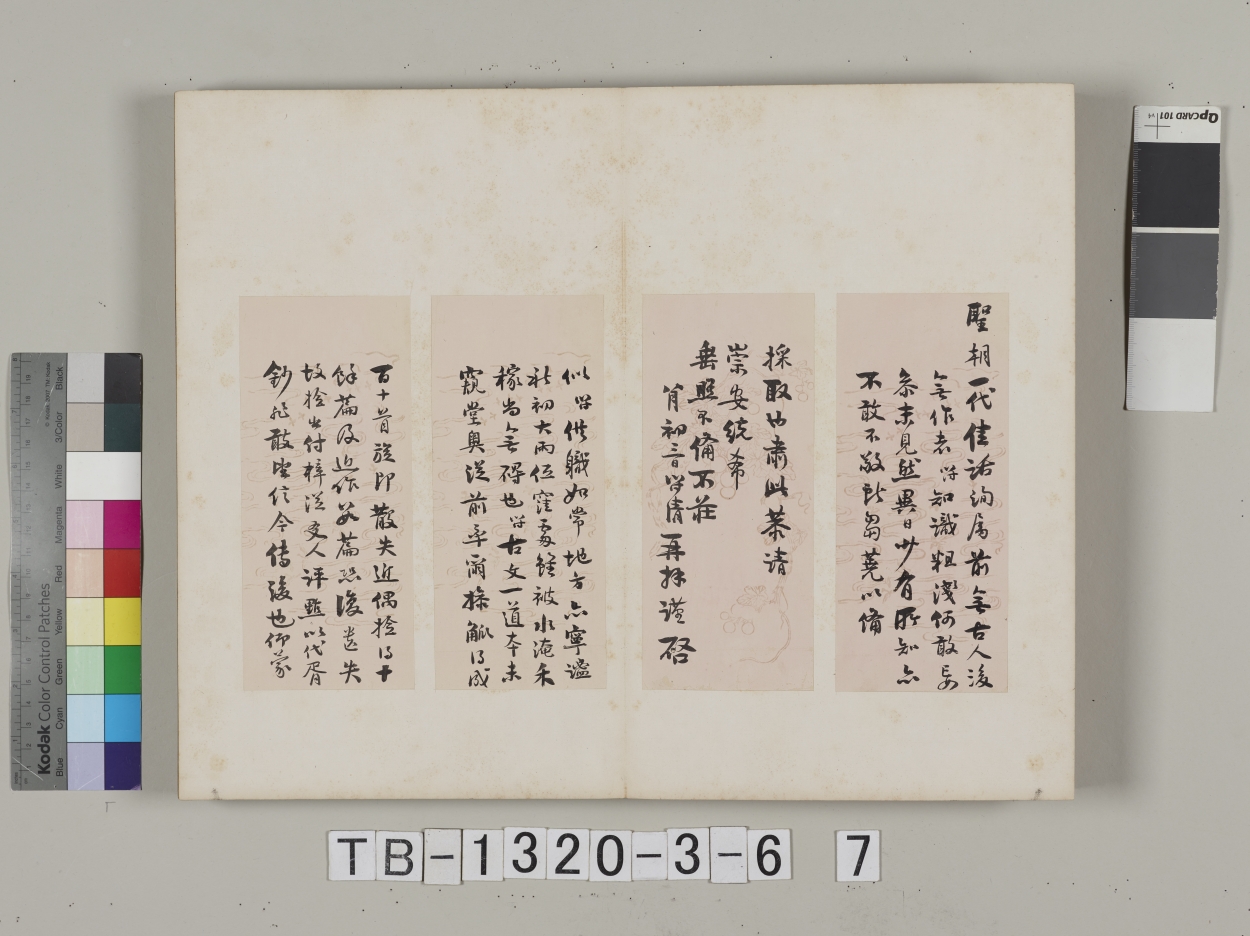 聖朝一代佳話詢屬前無古人後
無作者 知識粗淺何敢妄
參末見然異日少有所知亦
不敢不敬獻芻蕘以備
採取也肅此恭請
崇安統希
垂照不備不莊
月初三日 再拜謹啓
似 供職如常地方亦寧謐
秋初大雨低窪處雖被水淹禾
稼尚無礙也 古文一道本未
窺堂奧從前率爾操觚得成
百十首旋即散失近偶撿得十
餘篇及近作數篇恐復遺失
故撿出付梓從友人評點以代胥
鈔非敢望信今傳後也仰蒙
TB-1320-3-6 7
QPCARD 101
Kodak Color Control Patches
Blue Cyan Green Yellow Red Magenta White 3/Color Black